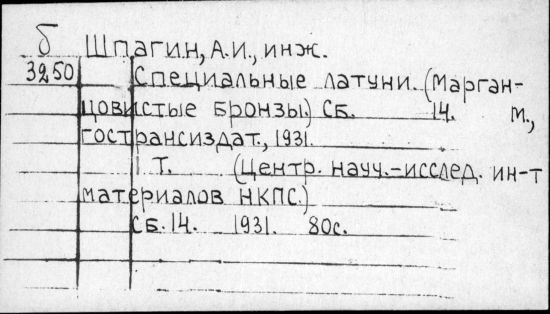 б Шпагин, А.И., инж.
3250 Специальные латуни. (Марган-
цовистые бронзы.) Сб. 14. М.,
гострансиздат., 1931.
1 т. (Центр. науч.-исслед. ин-т
материалов НКПС.)
Сб. 14. 1931. 80с.